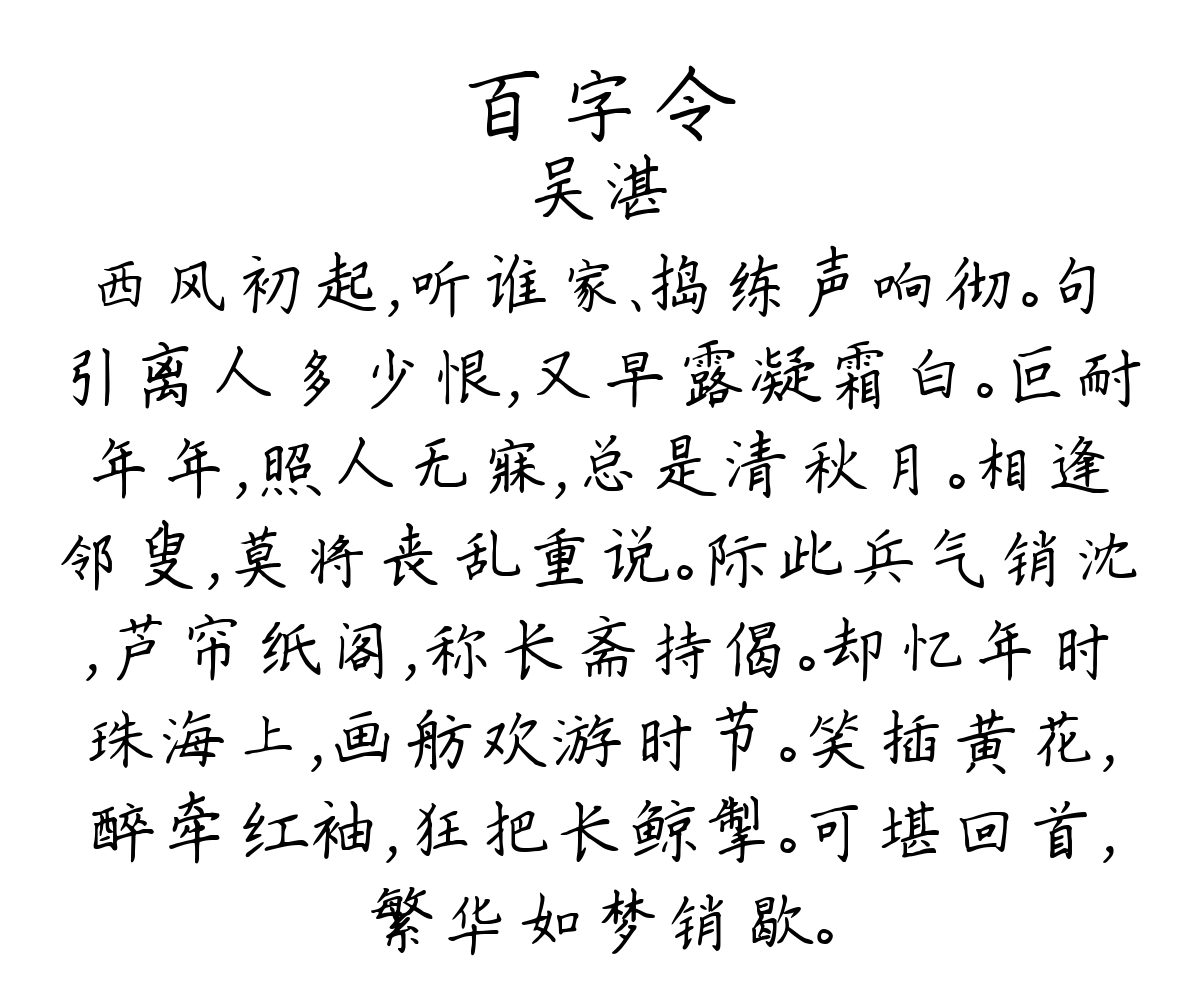 百字令
吴湛
西风初起,听谁家、捣练声响彻。句
引离人多少恨,又早露凝霜白。叵耐
年年,照人无寐,总是清秋月。相逢
邻叟,莫将丧乱重说。际此兵气销沈
,芦帘纸阁,称长斋持偈。却忆年时
珠海上,画舫欢游时节。笑插黄花,
醉牵红袖,狂把长鲸掣。可堪回首,
繁华如梦销歇。